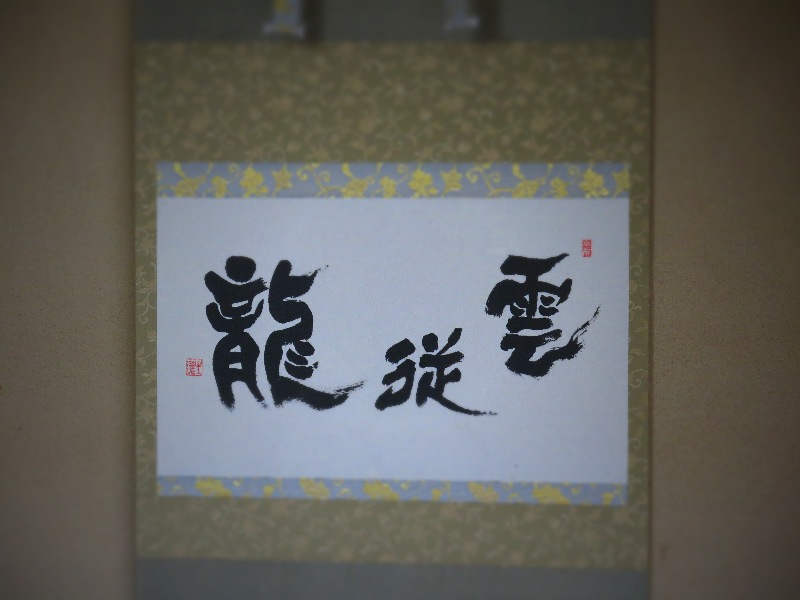 雲従龍